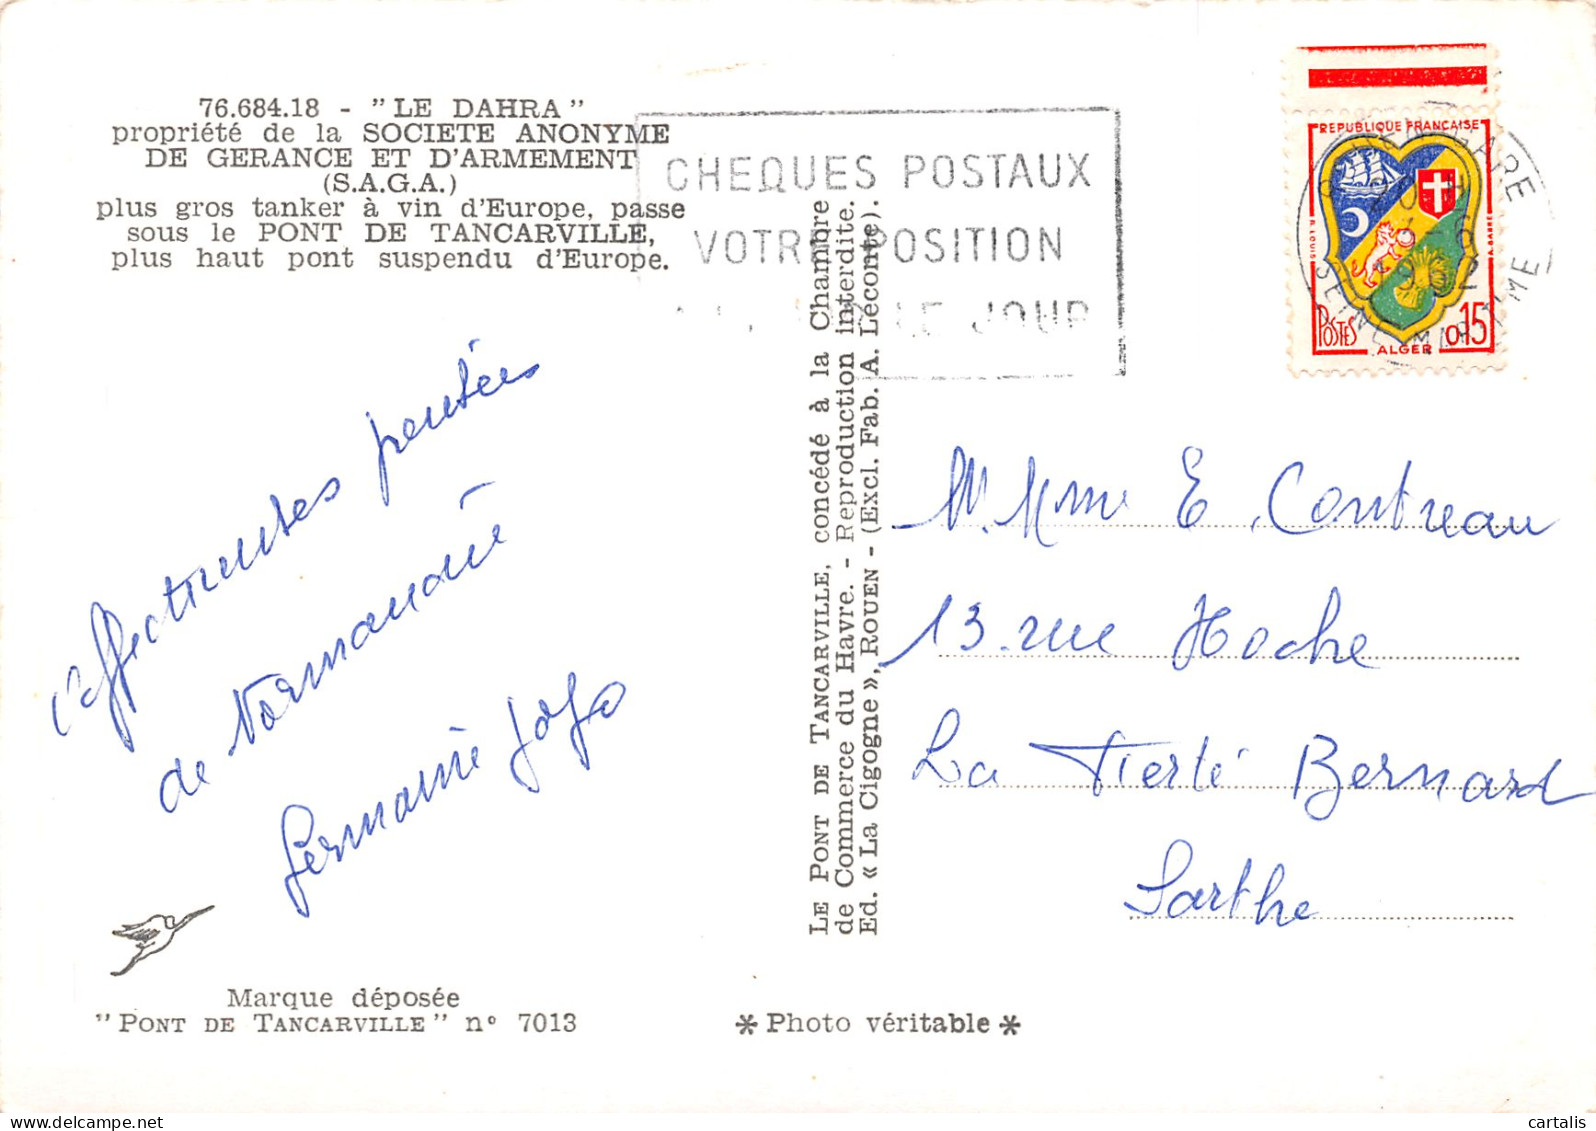 76.684.18 - "LE DAHRA"
propriété de la SOCIETE ANONYME
DE GERANCE ET D'ARMEMENT
(S.A.G.A.)
plus gros tanker à vin d'Europe, passe
sous le PONT DE TANCARVILLE,
plus haut pont suspendu d'Europe.
CHEQUES POSTAUX
VOTRE POSITION
LE JOUR
REPUBLIQUE FRANÇAISE
POSTES
0,15
ALGER
GARE
SEINE MARITIME
affectueuses pensées
de Normandie
Germaine
LE PONT DE TANCARVILLE, concédé à la Chambre
de Commerce du Havre. - Reproduction interdite.
Ed. « La Cigogne », ROUEN - (Excl. Fab. A. Leconte).
M. Mme E. Contreau
13. rue Hoche
La Ferté Bernard
Sarthe
Marque déposée
"PONT DE TANCARVILLE" n° 7013
* Photo véritable *
delcampe.net
cartalis